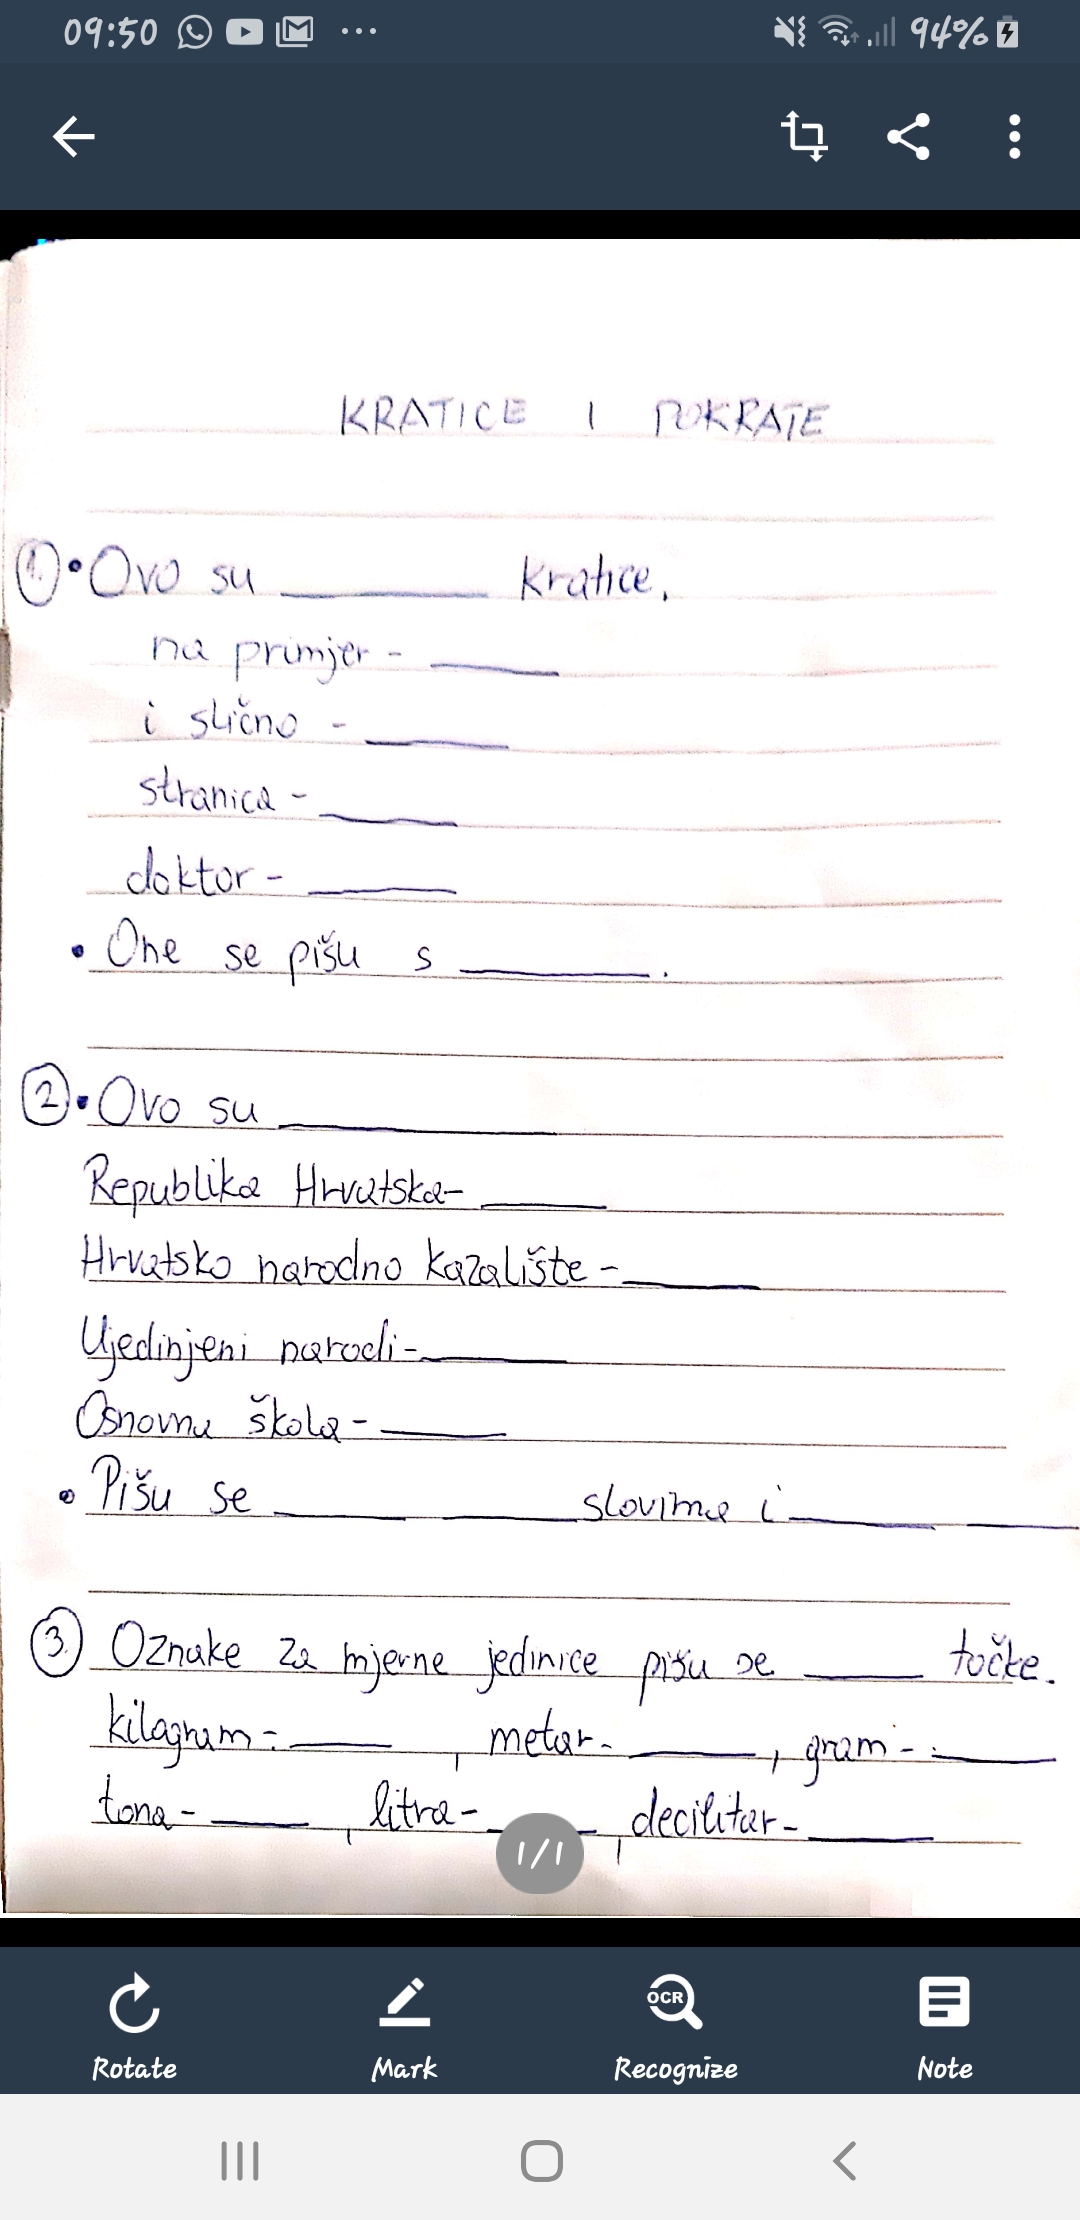 09:50 ... 94%
KRATICE I POKRATE
1. • Ovo su ________ kratice.
na primjer - ______
i slično - ______
stranica - ______
doktor - ______
• One se pišu s ________.
2. • Ovo su ____________
Republika Hrvatska- ______
Hrvatsko narodno kazalište - ______
Ujedinjeni narodi- ______
Osnovna škola - ______
• Pišu se ______ ______ slovima i ______ ______
3. Oznake za mjerne jedinice pišu se ______ točke.
kilogram - ______ , metar - ______ , gram - ______
tona - ______ , litra - ______ , decilitar - ______
1/1
Rotate Mark OCR Recognize Note